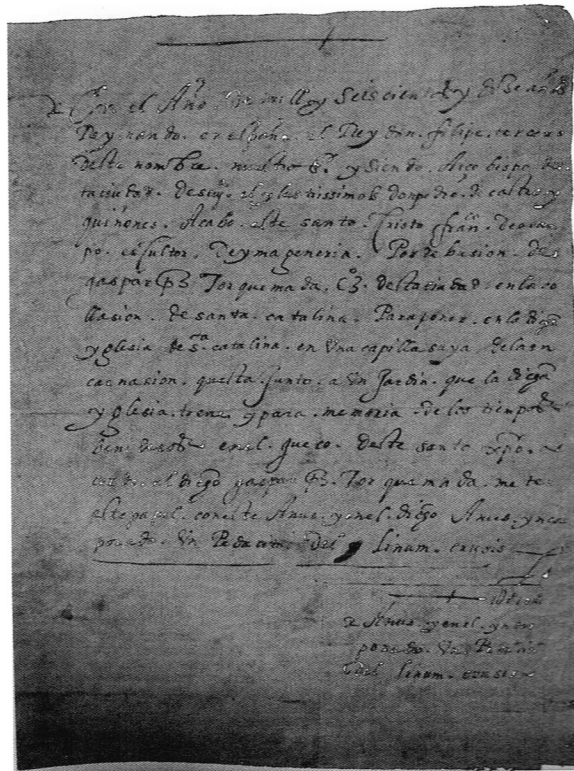 en el Año de mill y seis cientos y
Reynando. en el el Rey don. filipe. tercero
deste nombre. nuestro Sr. y siendo. Arçobispo de
taciudad. de el yllustrissimo donpedro. de castro y
quiñones. Acabo. este santo. Cristo fran. deoca
po. escultor. De ymagineria. Por debosion. de
gaspar Pz Torquemada. destaciudad. en la co
llasion. de santa. catalina. Para poner. en la digo
yglesia de sta catalina. en Una capilla suya de la en
carnasion. questa. junto. a un Jardin. que la
yglesia. tiene y para. memoria. de los tiempos
en el. gueco. deste santo xpo.
el gaspar Pz. Torquemada. me te
este papel. con este Anus. y en el. digo Anus. ynco
porado. Un Pedaco del linum. crusis
Anus. y en el. ynco
porado. Un
del linum. crusis